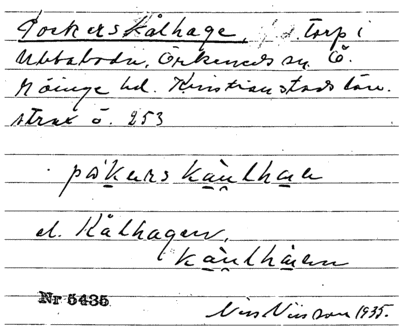 Pockerskålhage, f. d. torp i
Ubbaboda, Örkeneds sn, Ö.
Göinge hd. Kristianstads län.
strax ö. 253
påkers kåulhaen
el. Kålhagen,
kåulhåen
Nr 5435
Nils Nilsson 1935.